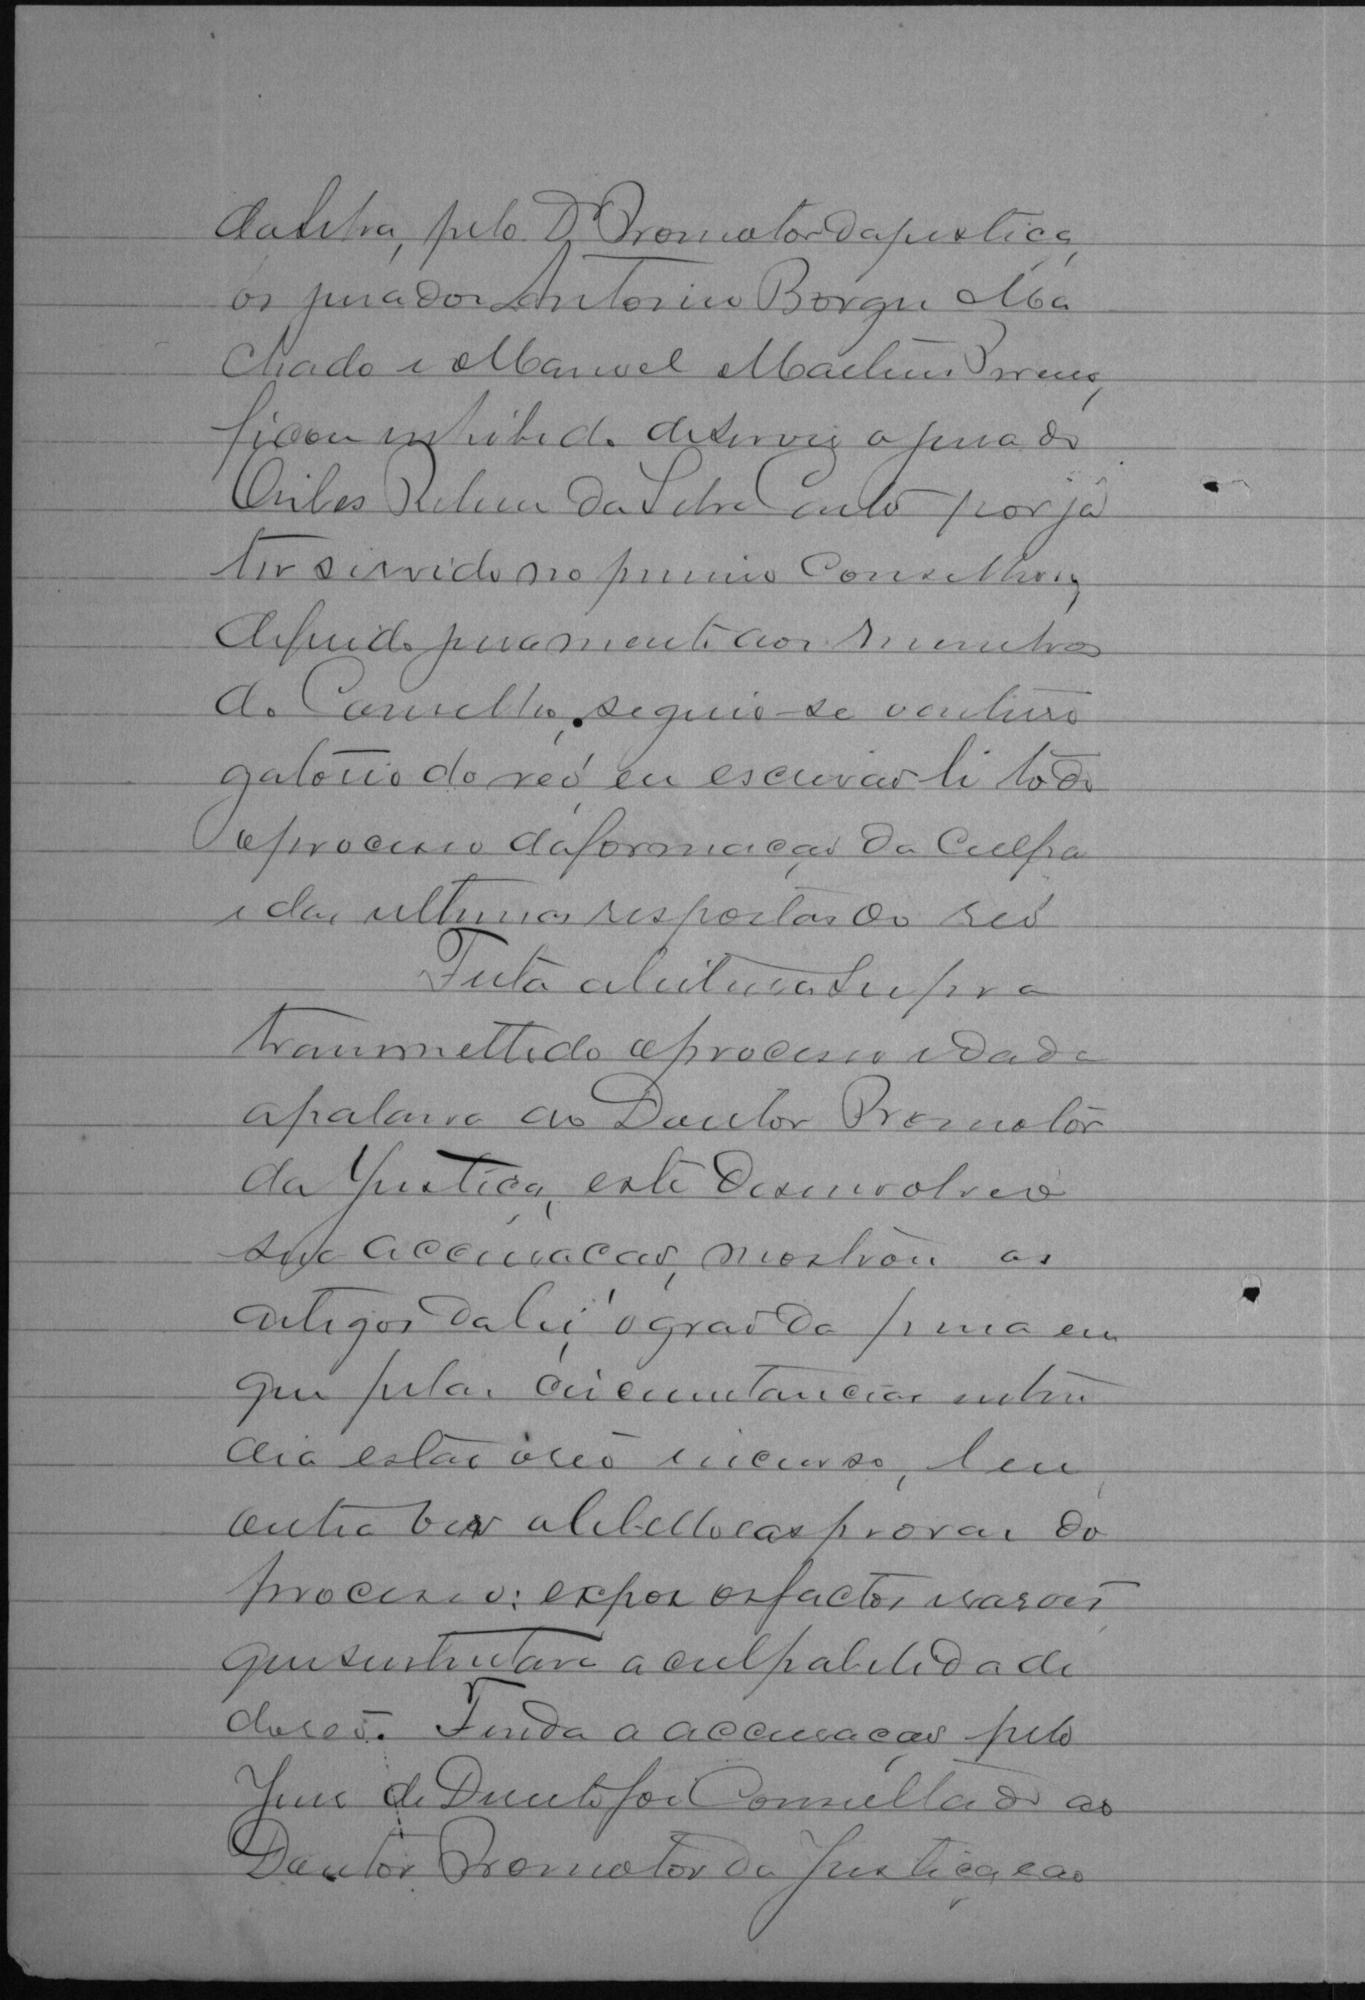 da Silva, pelo Dr Promotor da justiça
os jurados Antonio Borges Ma
chado e Manoel Martins
ficou inhibido de servir o jurado
Ribeiro da Silva Couto por já
ter servido no primeiro Conselho,
deferido juramento aos membros
do Conselho, seguio-se o interro
gatorio do reó eu escrivão li todo
o processo da formação da Culpa
e das ultimas respostas do reó
Feita a leitura supra
transmettido o processo e dada
a palavra ao Doutor Promotor
da Justiça, este desenvolveo
sua accusação, mostrou os
artigos da lei, o grao da pena em
que pelas circumstancias enten
dia estar o reó incurso, leu
outra vez o libello e as provas do
processo: expox os factos e rasoes
que sustentavão a culpabilidade
do reó. Finda a accusação pelo
Juis de Direito foi Consultado ao
Doutor Promotor da Justiça e ao